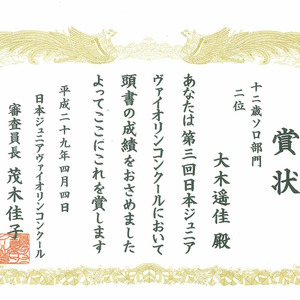 賞状
十二歳ソロ部門
二位
大木遥佳 殿
あなたは第三回日本ジュニア
ヴァイオリンコンクールにおいて
頭書の成績をおさめました
よってここにこれを賞します
平成二十九年四月四日
日本ジュニアヴァイオリンコンクール
審査員長 茂木佳子